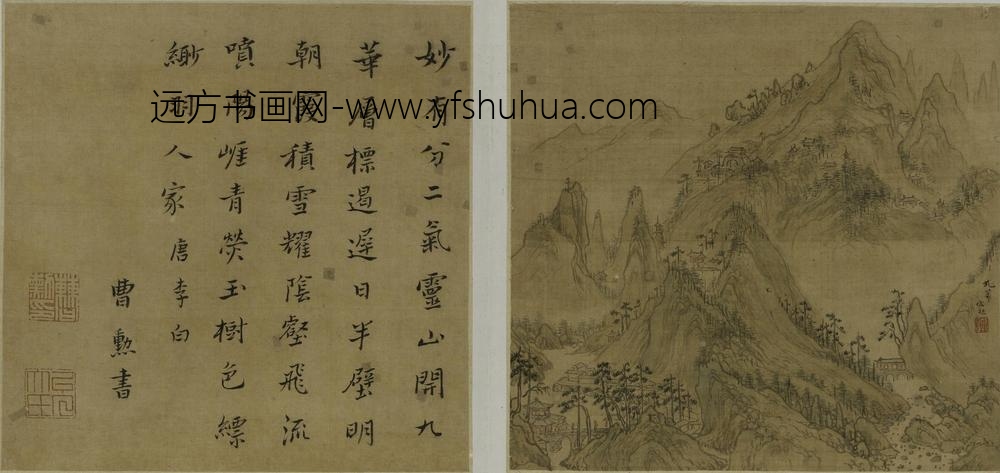 妙有分二氣靈山開九
華層標遏遲日半壁明
朝霞積雪耀陰壑飛流
噴陽崖青熒玉樹色縹
緲羽人家 唐李白
曹勲書
远方书画网-www.yfshuhua.com
九華